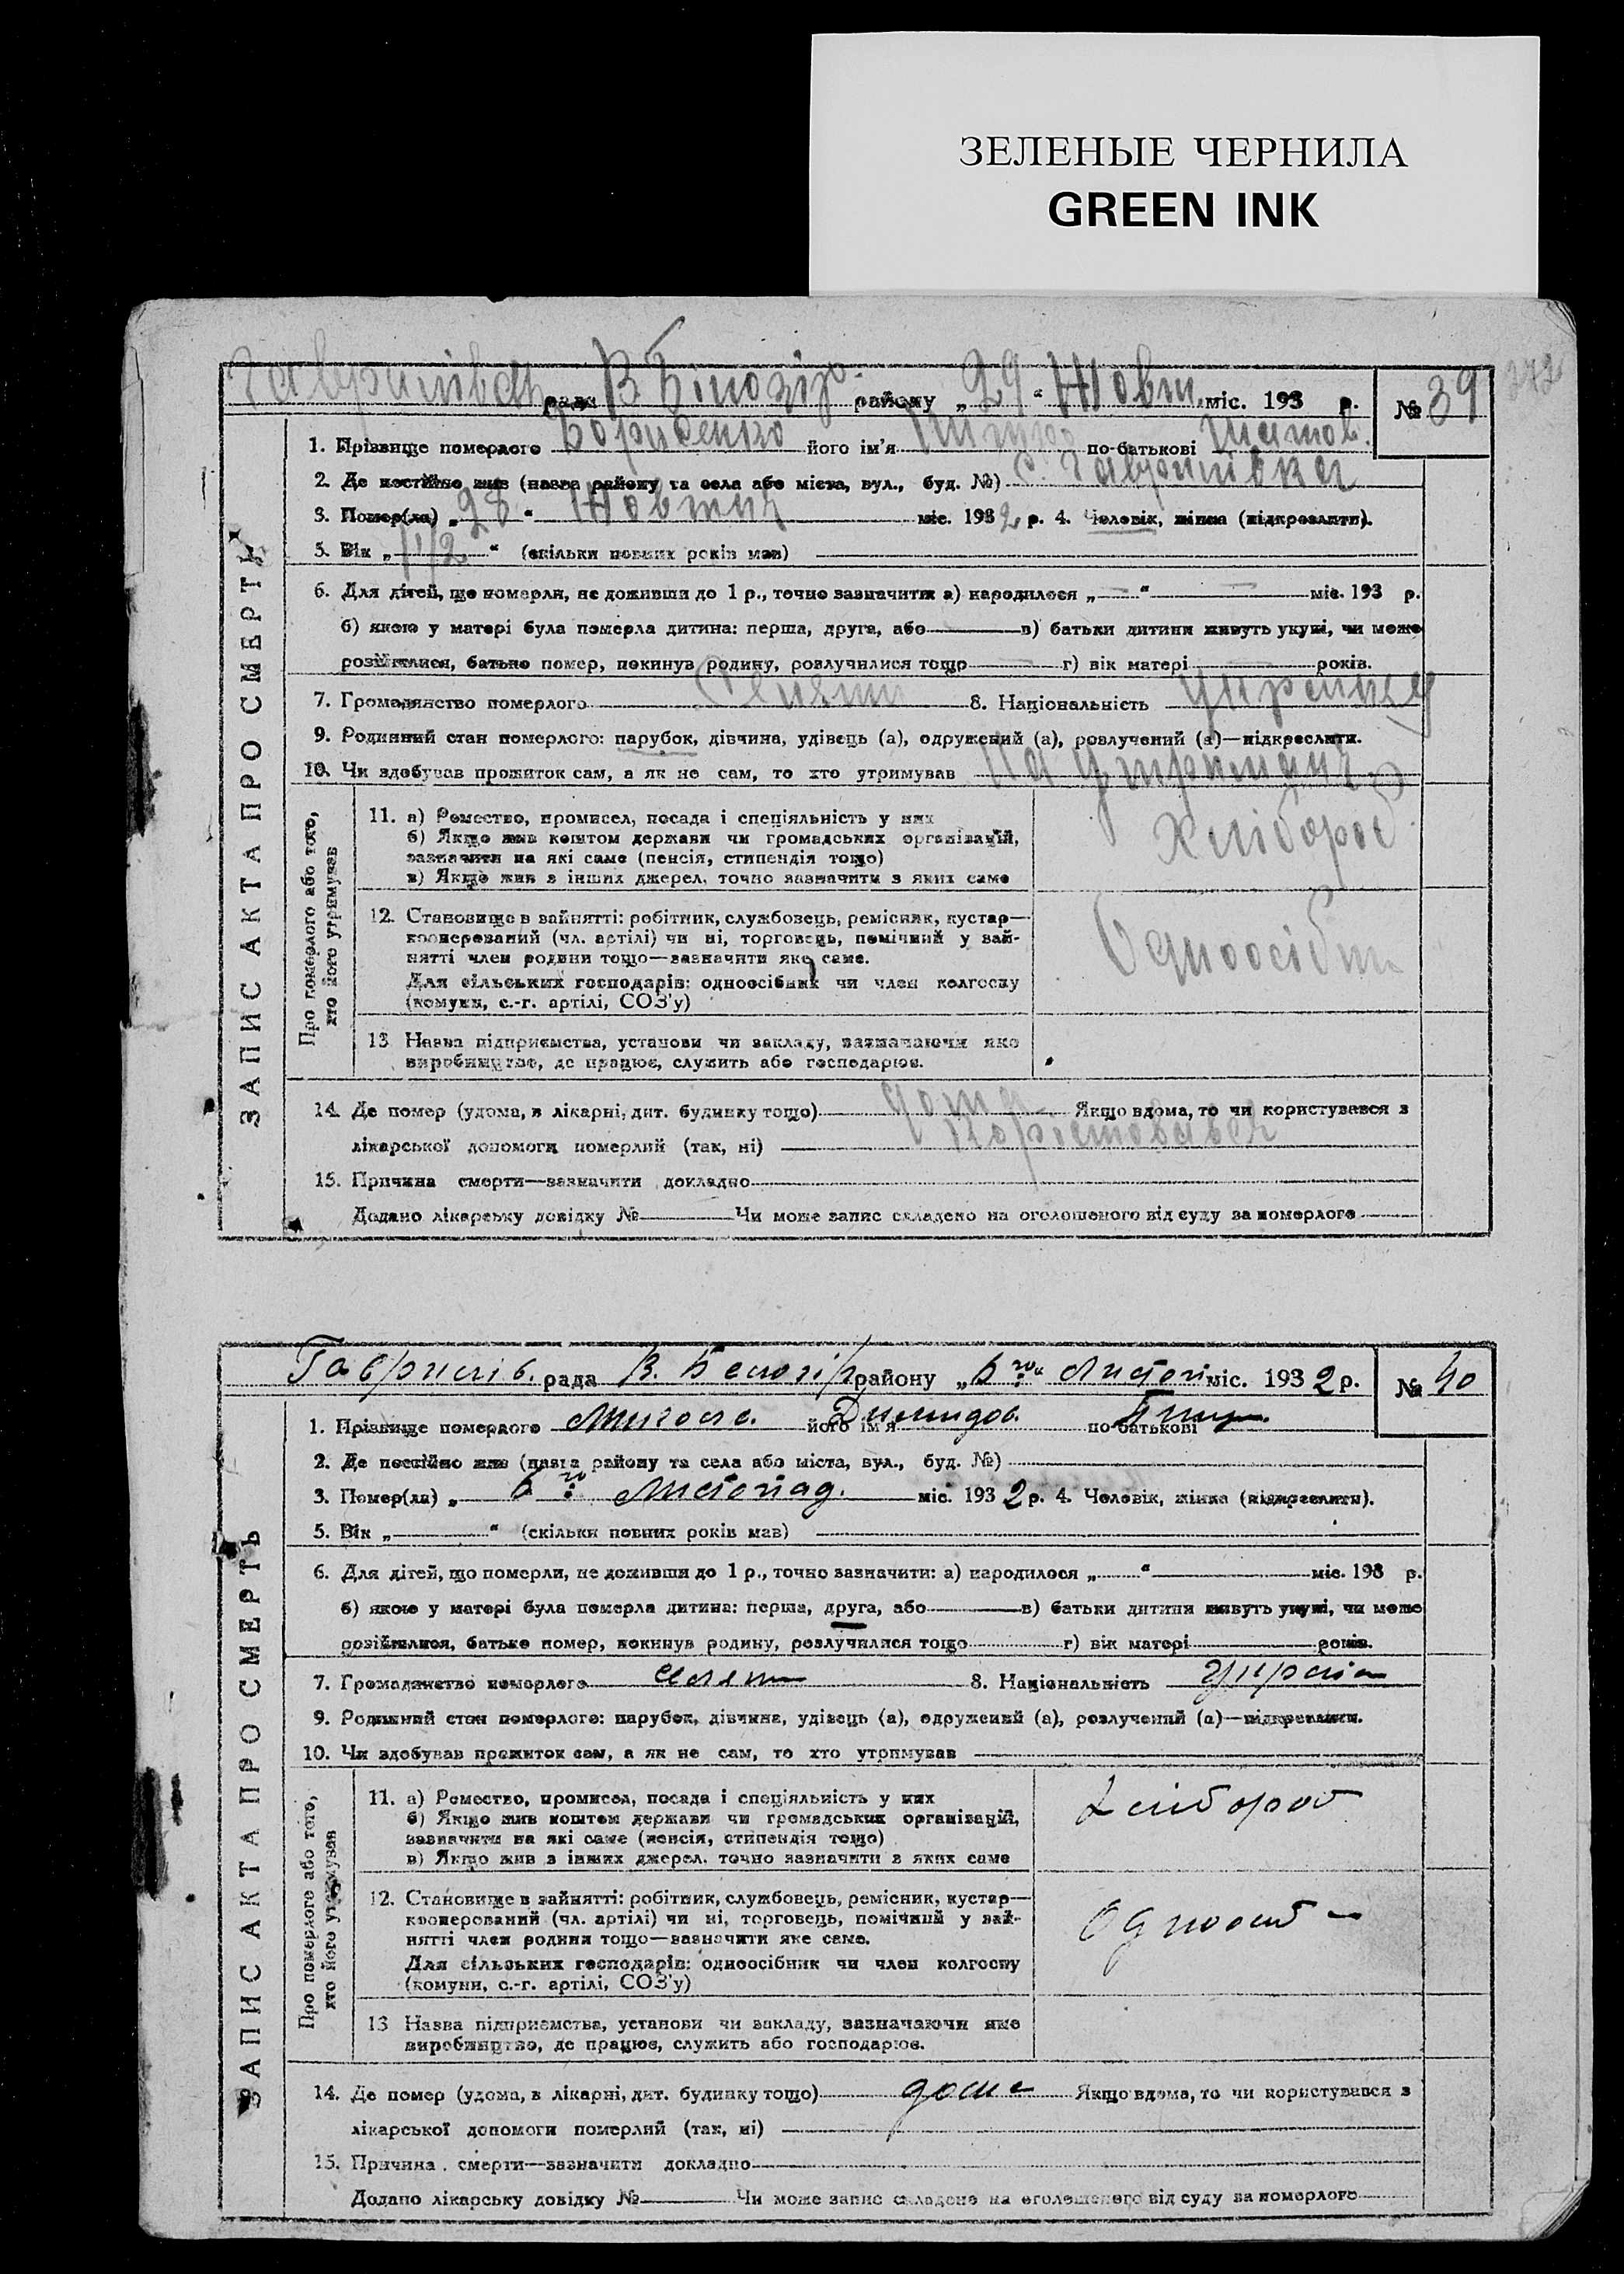 ЗЕЛЕНЫЕ ЧЕРНИЛА
GREEN INK
рада В. Білозір району „29“ Жовт. міс. 193 р. № 39
1. Прізвище померлого Бориченко його ім'я по-батькові
2. Де постійно жив (назва району та села або міста, вул., буд. №) с. Гавришівка
3. Помер(ла) „28“ Жовтня міс. 1932 р. 4. Чоловік, жінка (підкреслити).
5. Вік „1 1/2“ (скільки повних років мав)
6. Для дітей, що померли, не доживши до 1 р., точно зазначити: а) народилося „ “ міс. 193 р.
б) якою у матері була померла дитина: перша, друга, або в) батьки дитини живуть укупі, чи може
розійшлися, батько помер, покинув родину, розлучилися тощо г) вік матері років.
7. Громадянство померлого 8. Національність україн
9. Родинний стан померлого: парубок, дівчина, удівець (а), одружений (а), розлучений (а)—підкреслити.
10. Чи здобував прожиток сам, а як не сам, то хто утримував На утриманні
ЗАПИС АКТА ПРО СМЕРТЬ
Про померлого або того,
хто його утримував
11. а) Ремество, промисел, посада і спеціяльність у них
б) Якщо жив коштом держави чи громадських організацій,
зазначити на які саме (пенсія, стипендія тощо)
в) Якщо жив з інших джерел, точно зазначити з яких саме
Хлібороб
12. Становище в зайнятті: робітник, службовець, ремісник, кустар—
кооперований (чл. артілі) чи ні, торговець, помічний у зай-
нятті член родини тощо—зазначити яке саме.
Для сільських господарів: одноосібник чи член колгоспу
(комуни, с.-г. артілі, СОЗ'у)
Одноосібн
13 Назва підприємства, установи чи закладу, зазначаючи яке
виробництво, де працює, служить або господарює.
14. Де помер (удома, в лікарні, дит. будинку тощо) дома Якщо вдома, то чи користувався з
лікарської допомоги померлий (так, ні)
15. Причина смерти—зазначити докладно
Додано лікарську довідку № Чи може запис складено на оголошеного від суду за померлого
Гавришів. рада В. Білозір району „6го“ Листоп міс. 1932 р. № 40
1. Прізвище померлого його ім'я по-батькові
2. Де постійно жив (назва району та села або міста, вул., буд. №)
3. Помер(ла) „ 6го Листопад. міс. 1932 р. 4. Чоловік, жінка (підкреслити).
5. Вік „ “ (скільки повних років мав)
6. Для дітей, що померли, не доживши до 1 р., точно зазначити: а) народилося „ “ міс. 193 р.
б) якою у матері була померла дитина: перша, друга, або в) батьки дитини живуть укупі, чи може
розійшлися, батько помер, покинув родину, розлучилися тощо г) вік матері років.
7. Громадянство померлого 8. Національність україн
9. Родинний стан померлого: парубок, дівчина, удівець (а), одружений (а), розлучений (а)—підкреслити.
10. Чи здобував прожиток сам, а як не сам, то хто утримував
ЗАПИС АКТА ПРО СМЕРТЬ
Про померлого або того,
хто його утримував
11. а) Ремество, промисел, посада і спеціяльність у них
б) Якщо жив коштом держави чи громадських організацій,
зазначити на які саме (пенсія, стипендія тощо)
в) Якщо жив з інших джерел, точно зазначити з яких саме
Хлібороб
12. Становище в зайнятті: робітник, службовець, ремісник, кустар—
кооперований (чл. артілі) чи ні, торговець, помічний у зай-
нятті член родини тощо—зазначити яке саме.
Для сільських господарів: одноосібник чи член колгоспу
(комуни, с.-г. артілі, СОЗ'у)
Одноосіб
13 Назва підприємства, установи чи закладу, зазначаючи яке
виробництво, де працює, служить або господарює.
14. Де помер (удома, в лікарні, дит. будинку тощо) дома Якщо вдома, то чи користувався з
лікарської допомоги померлий (так, ні)
15. Причина смерти—зазначити докладно
Додано лікарську довідку № Чи може запис складено на оголошеного від суду за померлого